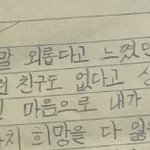 말 외롭다고 느꼈던
친구도 없다고
마음으로 내가
희망을 다